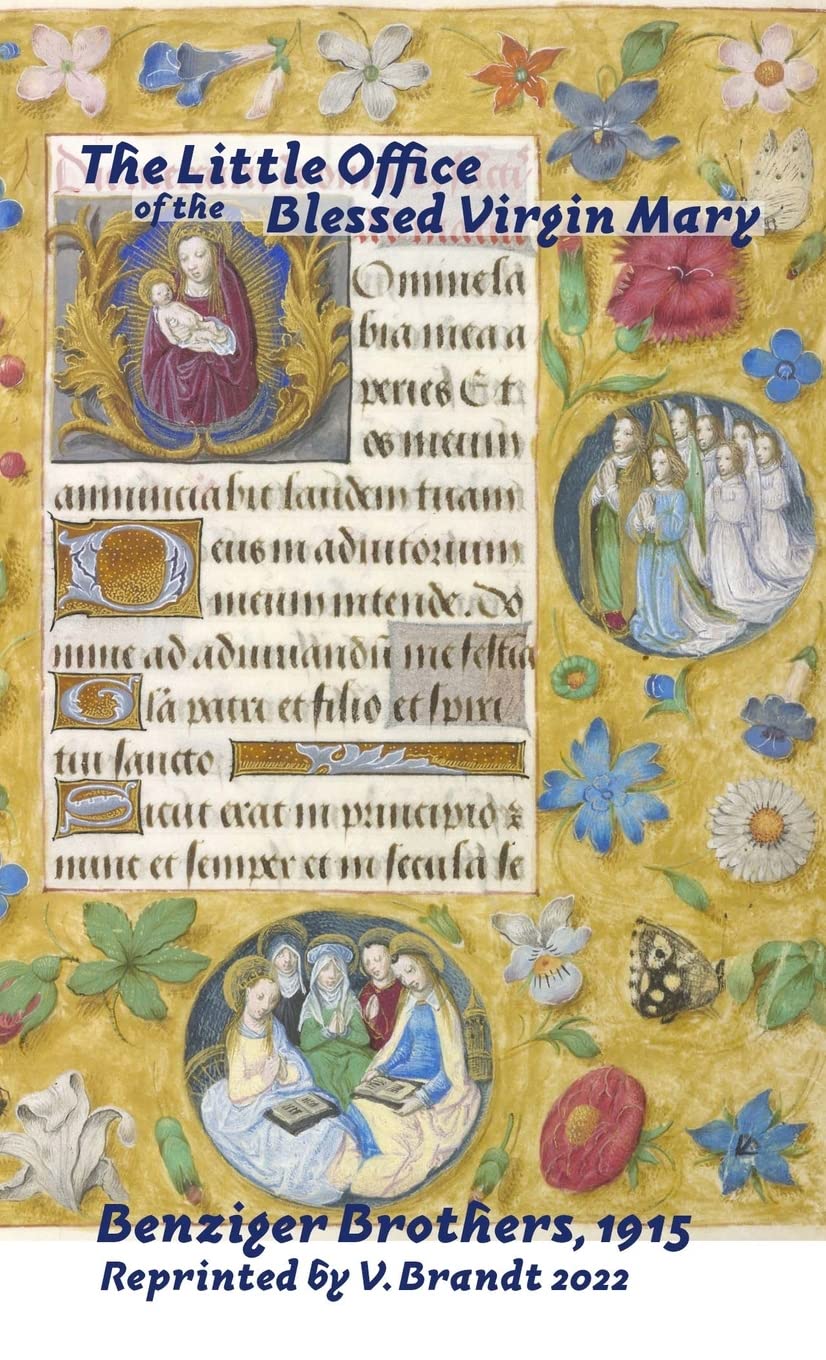 The Little Office
of the Blessed Virgin Mary
Omine la
bia mea a
peries Et
os meum
annunciabit laudem tuam
Deus in adiutorium
meum intende. Do
mine ad adiuuandū me festia
Gl'a patri et filio et spiri
tui sancto
Sicut erat in principio z
nunc et semper et in secula se
Benziger Brothers, 1915
Reprinted by V. Brandt 2022